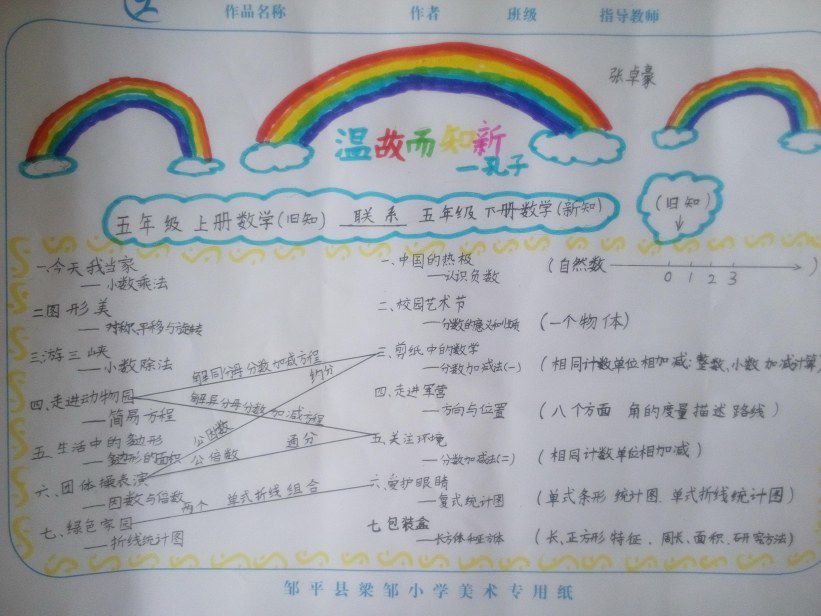 2
作品名称 作者 班级 指导教师
张卓豪
温故而知新
—孔子
五年级上册数学(旧知) 联系 五年级下册数学(新知)
(旧知)
一、今天我当家
—小数乘法
二图形美
—对称、平移与旋转
三、游三峡
—小数除法
四、走进动物园
—简易方程
五、生活中的多边形
—多边形的面积
六、团体操表演
—因数与倍数
七、绿色家园
—折线统计图
解同分母分数加减方程
约分
解异分母分数加减方程
公因数
通分
公倍数
两个 单式折线 组合
一、中国的热极
—认识负数
二、校园艺术节
—分数的意义和性质
三、剪纸中的数学
—分数加减法(一)
四、走进军营
—方向与位置
五、关注环境
—分数加减法(二)
六、爱护眼睛
—复式统计图
七包装盒
—长方体和正方体
(自然数 0 1 2 3 )
(一个物体)
(相同计数单位相加减:整数、小数加减计算)
(八个方面 角的度量 描述路线)
(相同计数单位相加减)
(单式条形统计图.单式折线统计图)
(长、正方形特征、周长、面积、研究方法)
邹平县梁邹小学美术专用纸